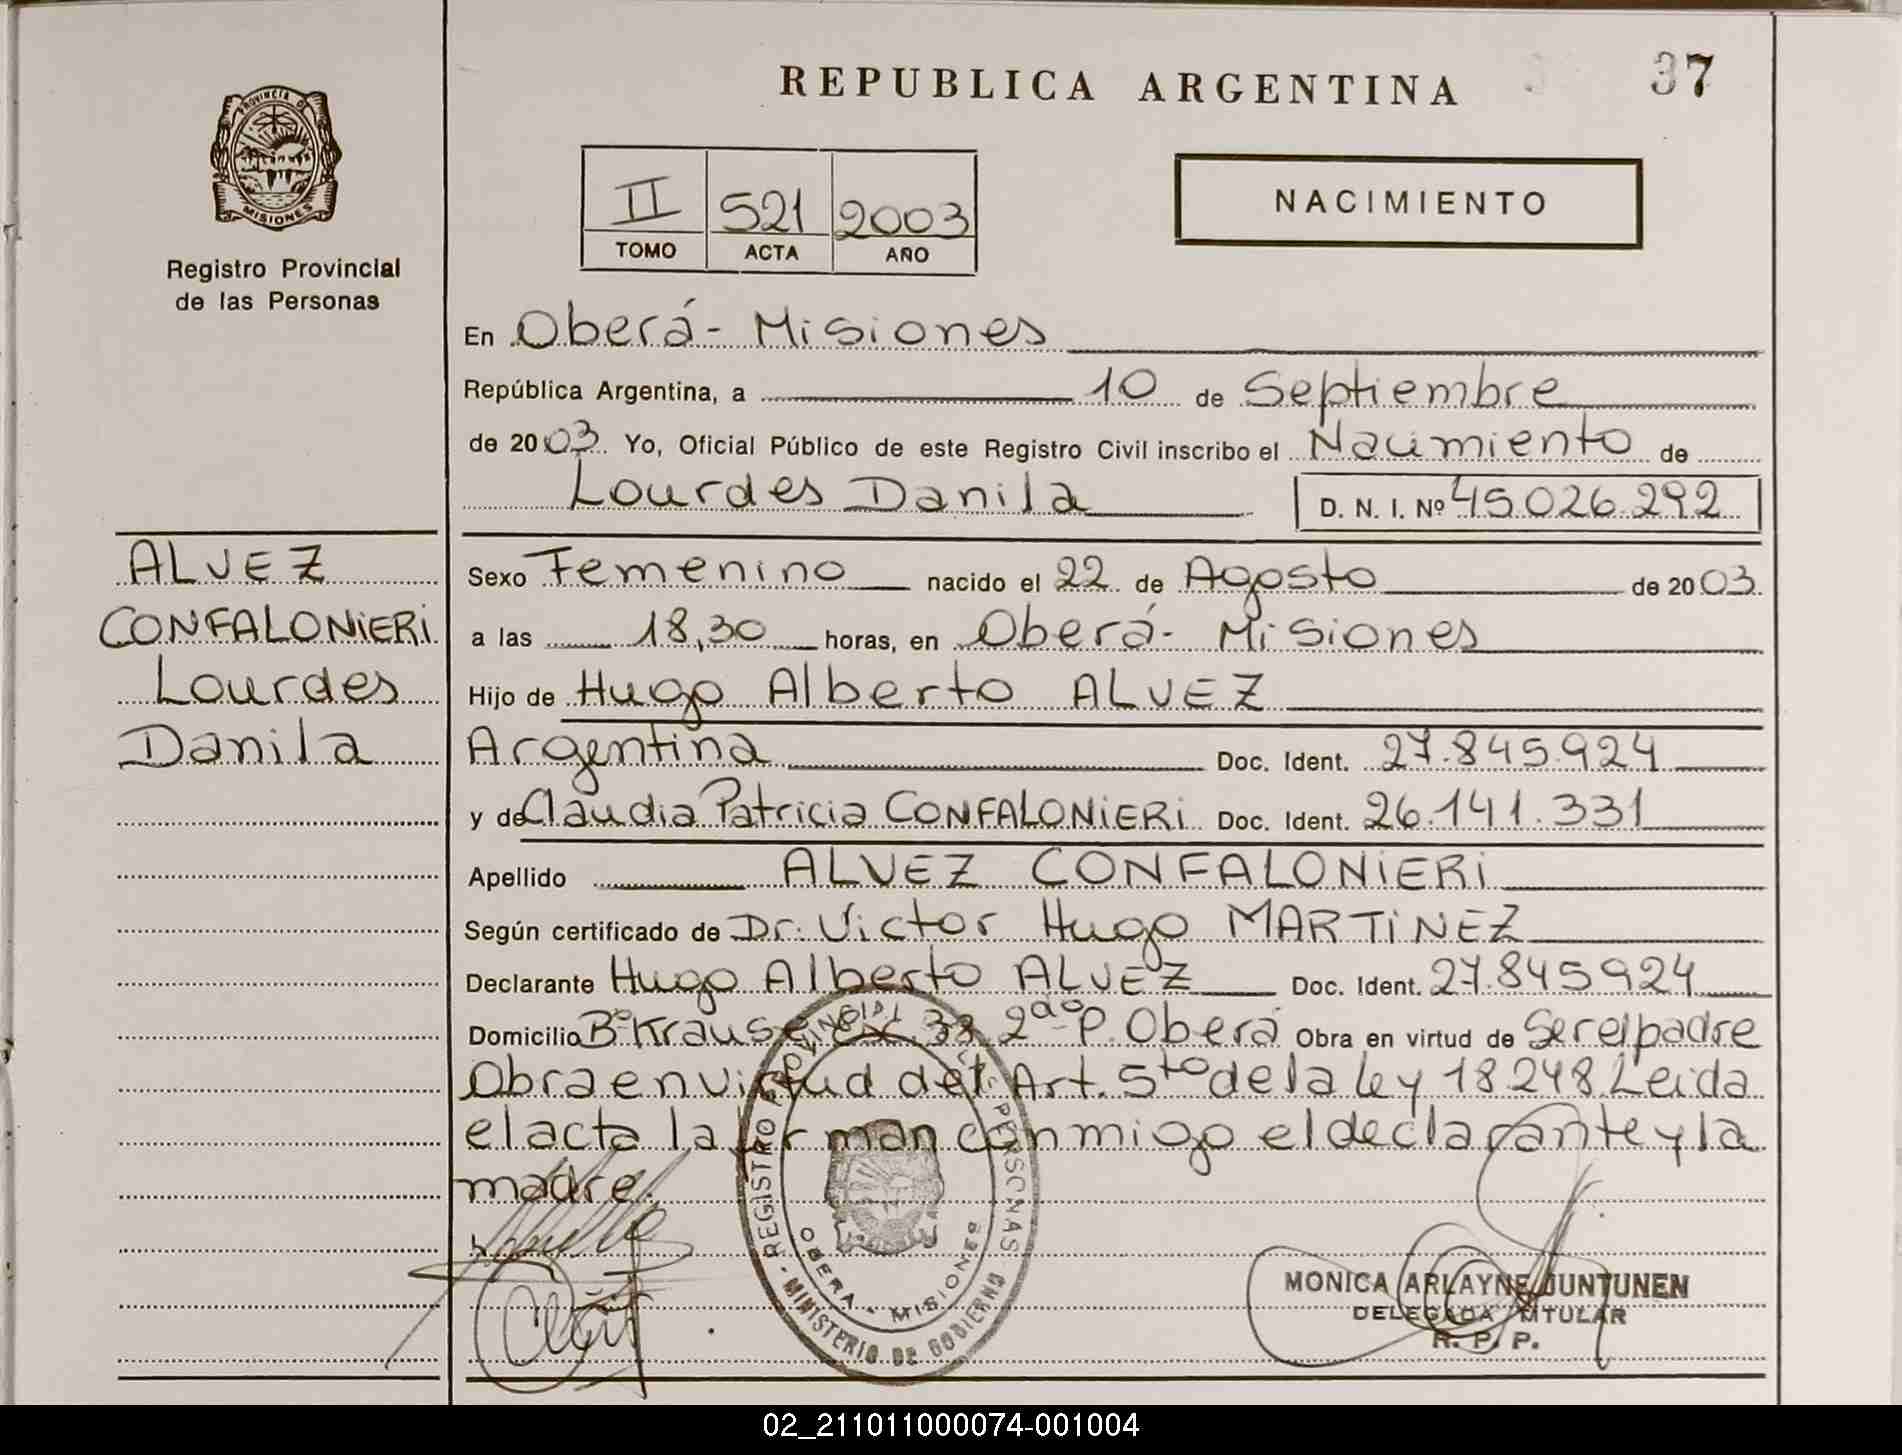 REPUBLICA ARGENTINA
37
PROVINCIA D
MISIONES
Registro Provincial
de las Personas
II 521 2003
TOMO ACTA AÑO
NACIMIENTO
En Oberá - Misiones
República Argentina, a 10 de Septiembre
de 2003. Yo, Oficial Público de este Registro Civil inscribo el Nacimiento de
Lourdes Danila D. N. I. Nº 45.026.292
ALVEZ
CONFALONiERi
Lourdes
Danila
Sexo Femenino nacido el 22 de Agosto de 2003.
a las 18,30 horas, en Oberá - Misiones
Hijo de Hugo Alberto ALVEZ
Argentina Doc. Ident. 27.845.924
y de Claudia Patricia CONFALONiERi Doc. Ident. 26.141.331
Apellido ALVEZ CONFALONiERi
Según certificado de Dr. Victor Hugo MARTiNEZ
Declarante Hugo Alberto ALVEZ Doc. Ident. 27.845924
Domicilio Bº Krause 33 2do P. Oberá Obra en virtud de Ser el padre
Obra en virtud del Art. 5to de la ley 18248. Leida
el acta la firman conmigo el declarante y la
madre.
REGISTRO PROVINCIAL PERSONAS
OBERA - MISIONES
MINISTERIO DE GOBIERNO
MONICA ARLAYNE JUNTUNEN
DELEGADA TITULAR
R. P. P.
02_211011000074-001004